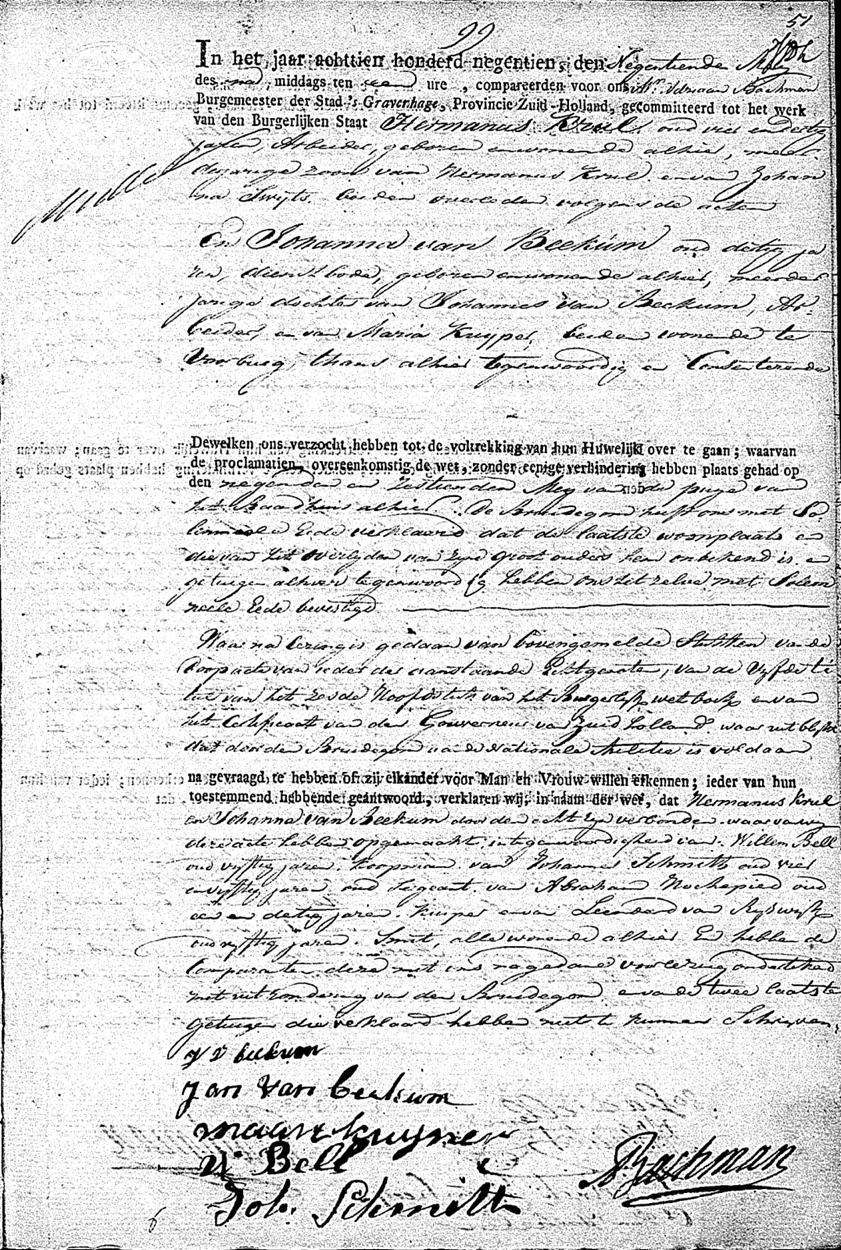 51
99
In het jaar achttien honderd negentien, den Negentiende Mey
des na middags ten een ure, compareerden voor ons Mr. Adriaan Bachman
Burgemeester der Stad 's Gravenhage, Provincie Zuid-Holland, gecommitteerd tot het werk
van den Burgerlijken Staat Hermanus Krul oud vier en dertig
jaren, Arbeider, geboren en wonende alhier, meer-
derjarige zoon van Hermanus Krul en van Johan
na Swijts beiden overleden volgens de acten
En Johanna van Beekum oud dertig ja
ren, dienstbode, geboren en wonende alhier, meerder
jarige dochter van Johannes van Beekum, Ar-
beider, en van Maria Kuyper, beiden wonende te
Voorburg, thans alhier tegenwoordig en Consenterende
Dewelken ons verzocht hebben tot de voltrekking van hun Huwelijk over te gaan; waarvan
de proclamatien, overeenkomstig de wet, zonder eenige verhindering hebben plaats gehad op
den negenden en zestienden Mey van de puye van
het Raadhuis alhier. De Bruidegom heeft ons met So-
lemneele Eede verklaard dat de laatste woonplaats en
die van het overlyden van zyne Groot ouders hem onbekend is en
getuigen alhier tegenwoordig hebben ons het zelve met Solem
neele Eede bevestigd
Waar na lezing is gedaan van bovengemelde Stukken van de
Doopacte van ieder der aanstaande Echtgenoten, van de Vyfde ti
tel van het Eerste Hoofdstuk van het Burgerlyk wetboek en van
het Certificaat van den Gouverneur van Zuid Holland waar uit blykt
dat door den Bruidegom aan de Nationale Militie is voldaan
na gevraagd te hebben of zij elkander voor Man en Vrouw willen erkennen; ieder van hun
toestemmend hebbende geantwoord, verklaren wij, in naam der wet, dat Hermanus Krul
en Johanna van Beekum door den echt zyn verbonden. waar van wy
deze acte hebben opgemaakt in tegenwoordigheid van Willem Bell
oud vyftig jaren Koopman van Johannes Schmitts oud vier
en vyftig jaren oud Sergeant van Abraham Nochepied oud
een en dertig jaren Kuiper en van Leendard van Ryswyk
oud vyftig jaren Smit, alle wonende alhier En hebben de
Comparanten deze met ons na gedane voorlezing ondertekend
met uitzondering van den Bruidegom en van de twee laatste
getuigen die verklaard hebben niet te kunnen Schryven
J V beekum
Jan Van beekum
maart kuyper
W Bell
Joh. Schmitt
ABachman
6